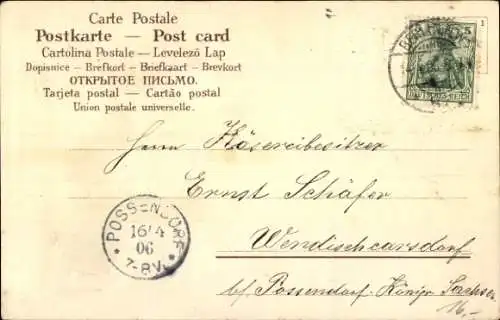 Carte Postale
Postkarte — Post card
Cartolina Postale — Levelező Lap
Dopisnice – Brefkort – Briefkaart – Brevkort
ОТКРЫТОЕ ПИСЬМО.
Tarjeta postal — Cartão postal
Union postale universelle.
1
Herrn Käsereibesitzer
Ernst Schäfer
Wendischcarsdorf
b/ Possendorf. Königr. Sachsen
16,-
POSSENDORF
16/4
06
7-8V.